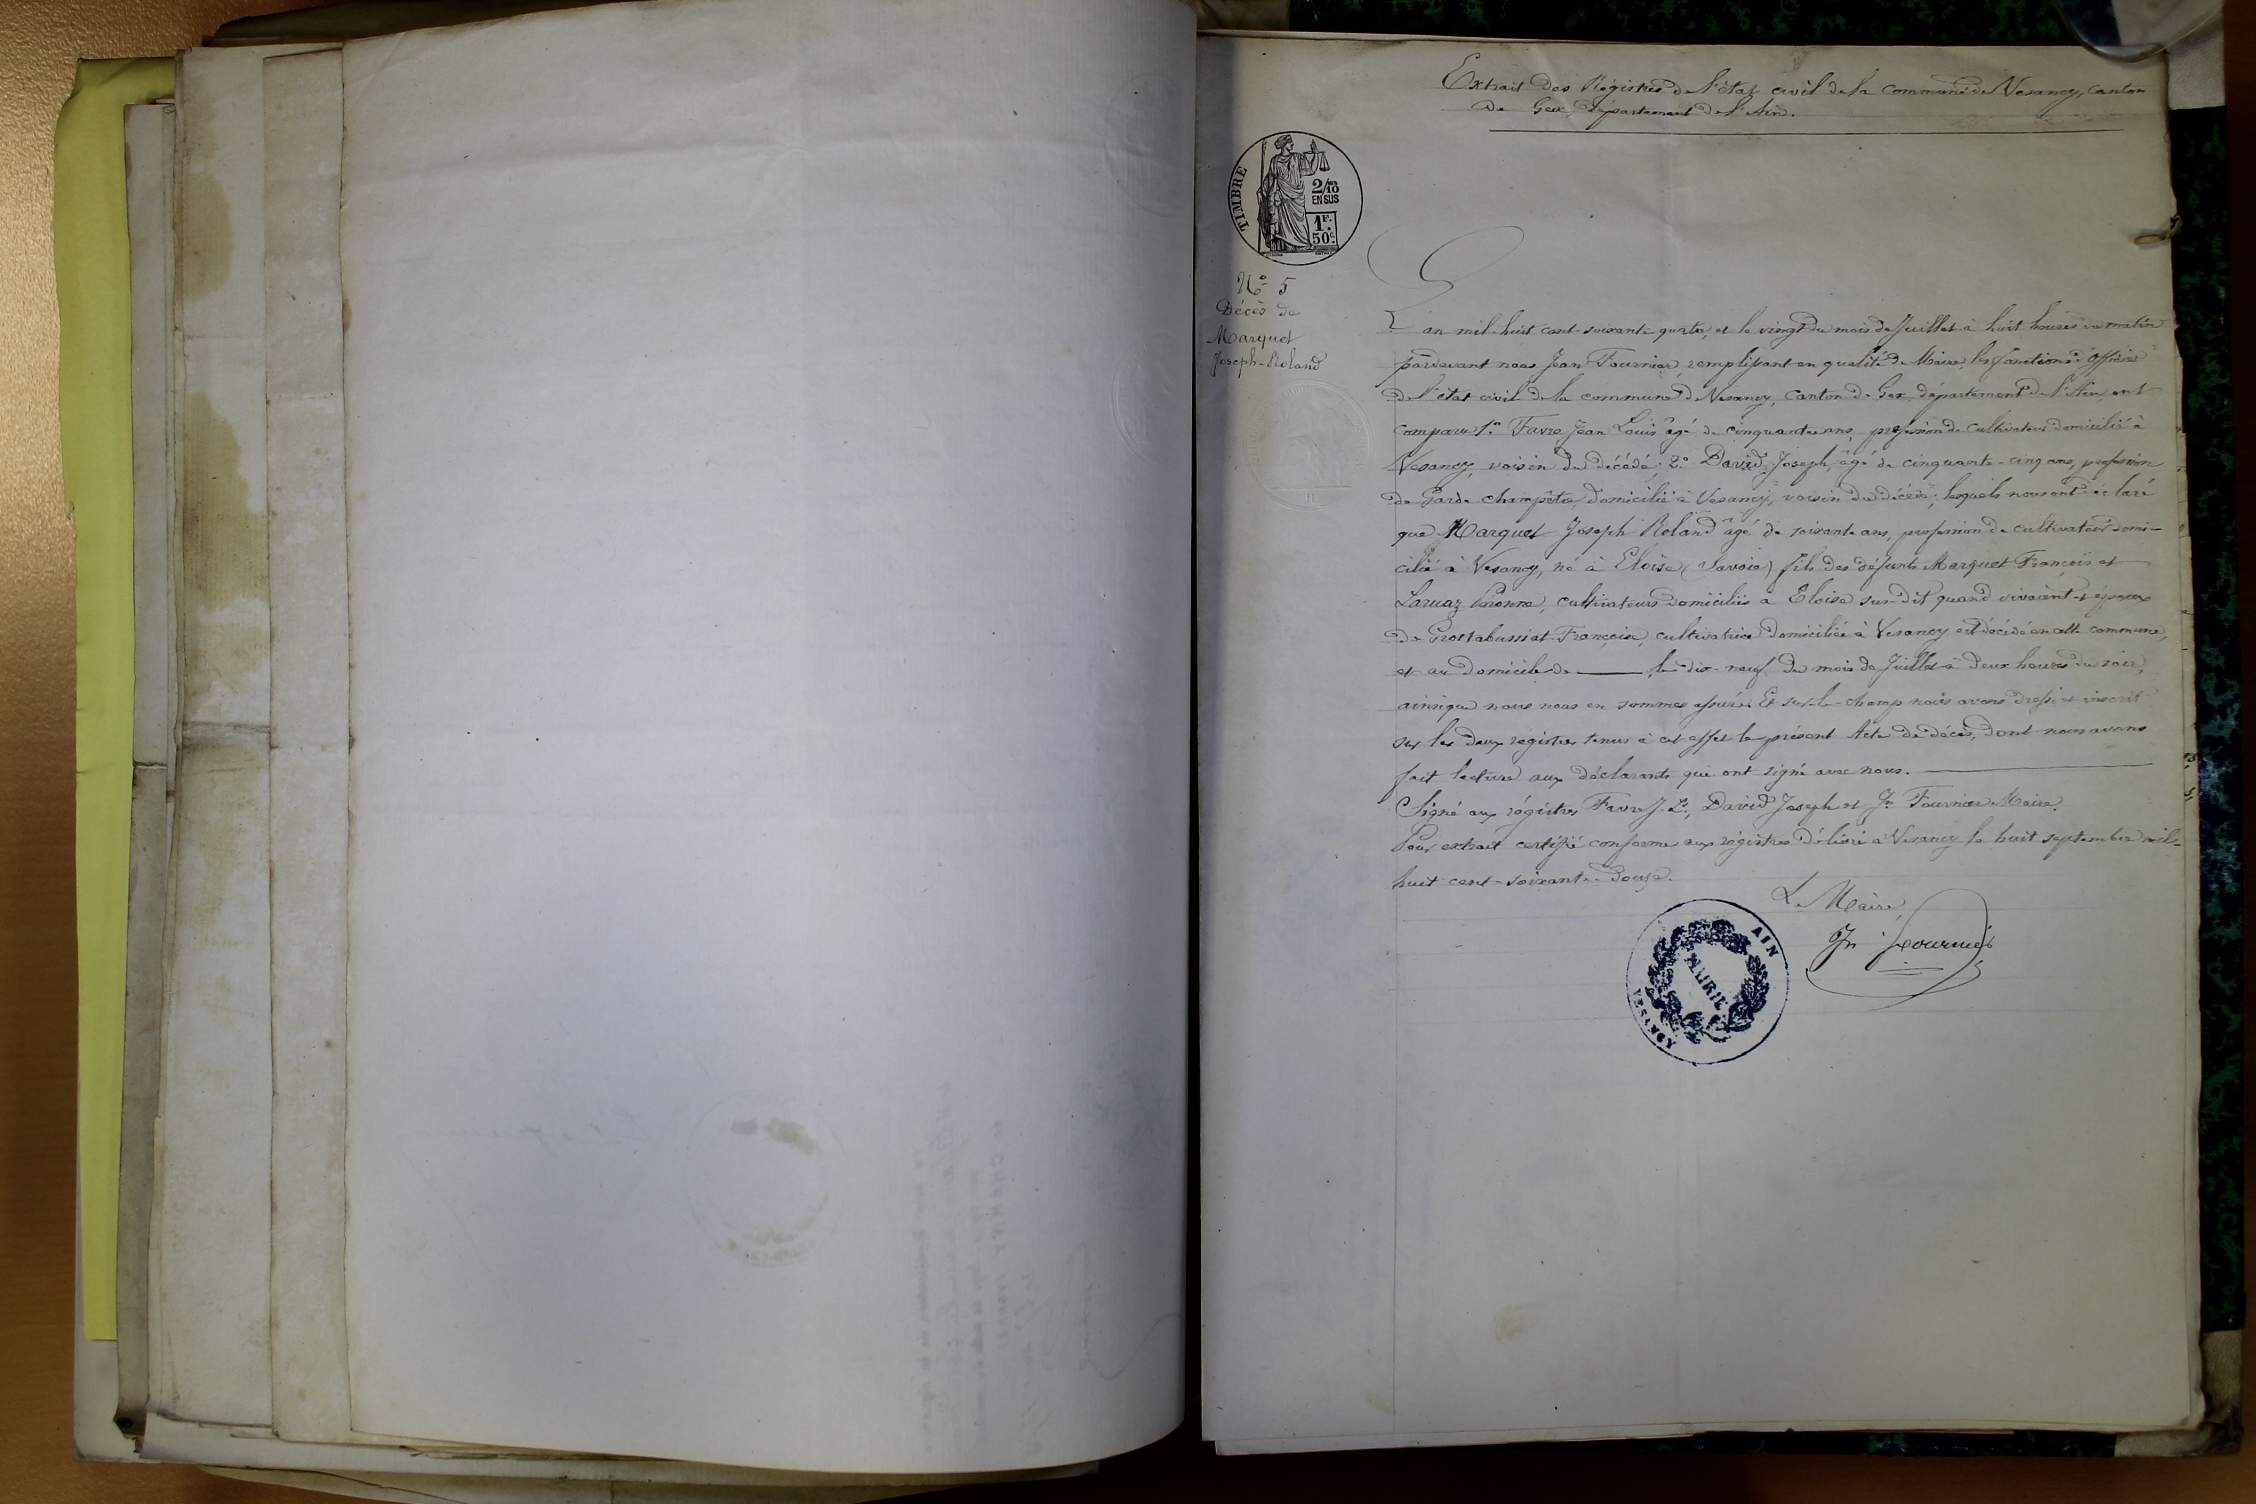 Extrait des Régistres de l'état civil de la commune de Vesancy, canton
de Gex, département de l'Ain.
TIMBRE
2/10
EN SUS
1F.
50c.
N° 5
Décès de
Marquet
Joseph-Roland
L'an mil-huit cent-soixante-quatre, et le vingt du mois de Juillet à huit heures du matin
pardevant nous Jean Fournier, remplissant en qualité de Maire, les fonctions d'officier
de l'état civil de la commune de Vesancy, canton de Gex, département de l'Ain ont
comparu 1° Favre Jean Louis âgé de cinquante ans, profession de cultivateur domicilié à
Vesancy, voisin du décédé; 2° David Joseph, âgé de cinquante-cinq ans, profession
de Garde champêtre domicilié à Vesancy, voisin du décédé; lesquels nous ont déclaré
que Marquet Joseph Roland âgé de soixante ans, profession de cultivateur domi-
cilié à Vesancy, né à Eloise (Savoie) fils des défunts Marquet François et
Laruaz, cultivateurs domiciliés à Eloise sus-dit quand vivaient et époux
de Françoise, cultivatrice domiciliée à Vesancy est décédé en cette commune,
et au domicile de ——— le dix-neuf du mois de Juillet à deux heures du soir,
ainsi que nous nous en sommes assurés. Et sur-le-champ nous avons dressé et inscrit
sur les deux régistres tenus à cet effet le présent Acte de décès, dont nous avons
fait lecture aux déclarants qui ont signé avec nous. ———
Signé aux régistres Favre J. Ls, David Joseph et Jn Fournier Maire.
Pour extrait certifié conforme aux régistres délivré à Vesancy le huit septembre mil-
huit cent-soixante-douze.
Le Maire,
Jn Fournier
AIN
MAIRIE
VESANCY